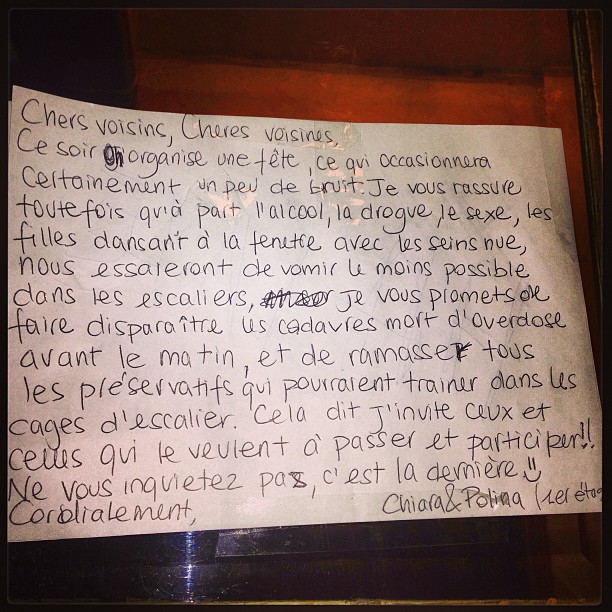 Chers voisins, Cheres voisines,
Ce soir on organise une fête, ce qui occasionnera
certainement un peu de bruit. Je vous rassure
toutefois qu'à part l'alcool, la drogue, le sexe, les
filles dansant à la fenetre avec les seins nue,
nous essaieront de vomir le moins possible
dans les escaliers, je vous promets de
faire disparaître les cadavres mort d'overdose
avant le matin, et de ramasser tous
les préservatifs qui pourraient trainer dans les
cages d'escalier. Cela dit j'invite ceux et
celles qui le veulent à passer et participer!!
Ne vous inquietez pas, c'est la dernière
Cordialement,
Chiara & Polina (1er étag